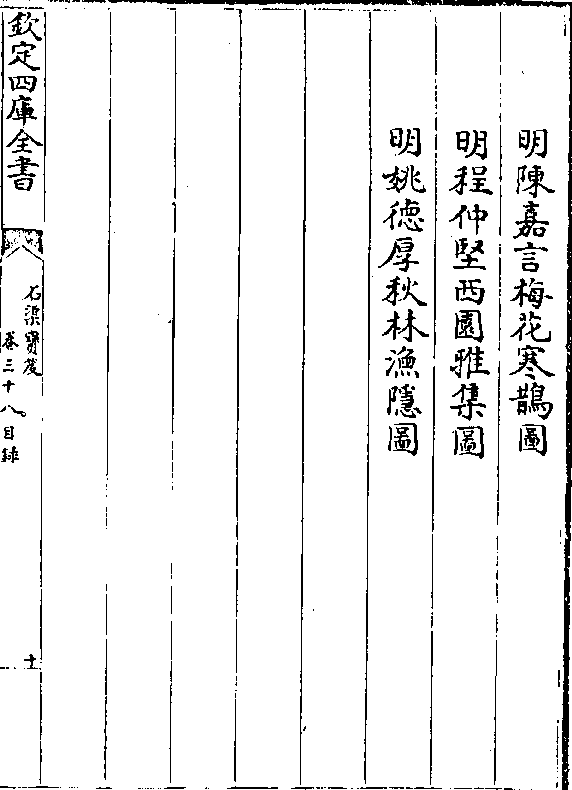 明陳嘉言梅花寒鵲圖
明程仲堅西園雅集圖
明姚德厚秋林漁隱圖
欽定四庫全書
石渠寶笈
卷三十八目録
十